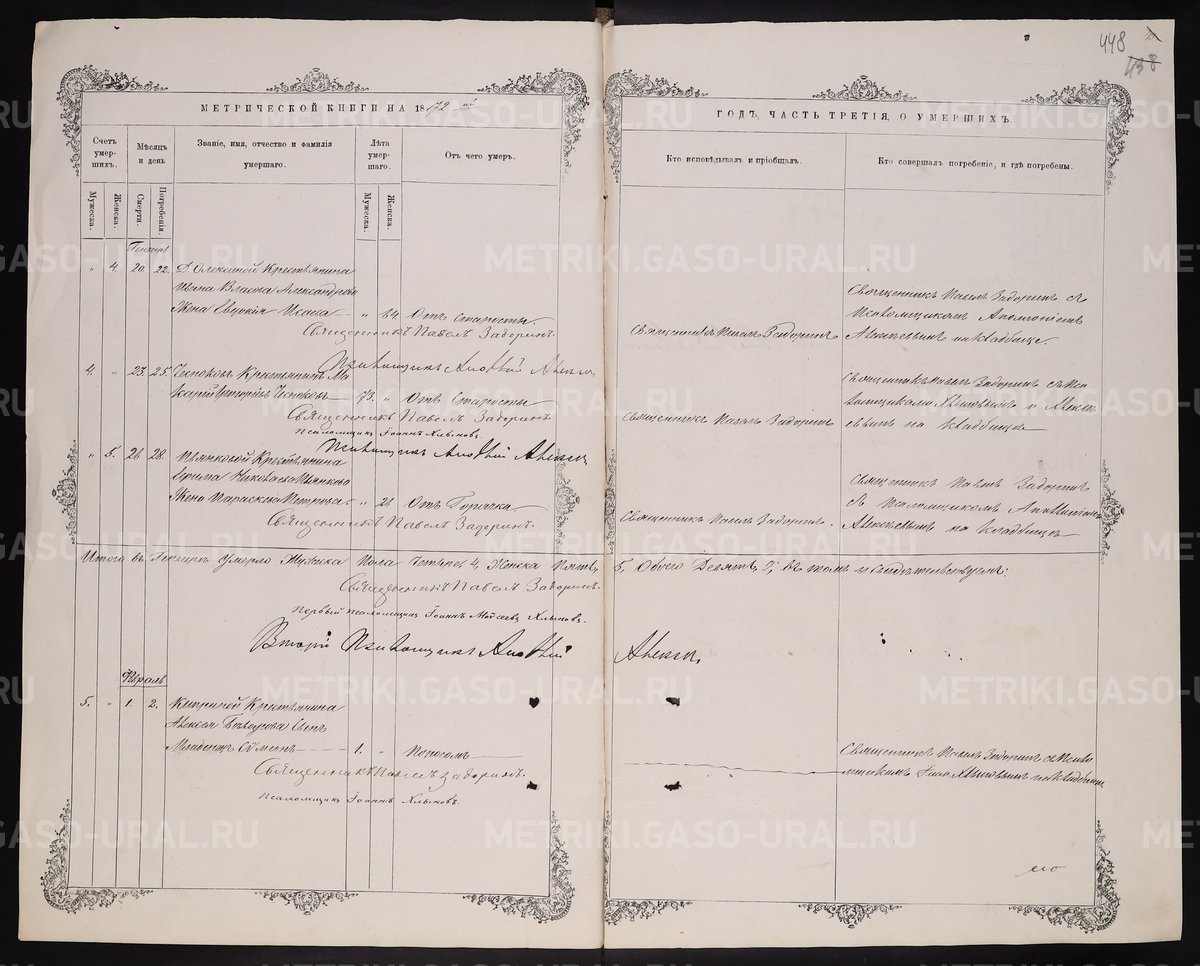 448
МЕТРИЧЕСКОЙ КНИГИ НА 1872 ый
ГОДЪ, ЧАСТЬ ТРЕТІЯ, О УМЕРШИХЪ.
Счетъ умер-шихъ.
Мѣсяцъ и день
Званіе, имя, отчество и фамилія умершаго.
Лѣта умер-шаго.
Отъ чего умеръ.
Кто исповѣдывалъ и пріобщалъ.
Кто совершалъ погребеніе, и гдѣ погребены.
Мужеска.
Женска.
Смерти.
Погребенія.
Мужеска.
Женска.
" 4. 20. 22. Крестьянина
Ивана Власова Александрова
Жена Евдокія Исаева " 64. Отъ Старости.
Священникъ Павелъ Задоринъ.
Священникъ Павелъ Задоринъ
Священникъ Павелъ Задоринъ съ
Псаломщикомъ
Алексѣевымъ на кладбище.
Псаломщикъ
4. " 23. 25. Крестьянинъ Ма
карій Григорьевъ 73. " Отъ Старости
Священникъ Павелъ Задоринъ.
Псаломщикъ Іоаннъ Хлыновъ.
Священникъ Павелъ Задоринъ
Священникъ Павелъ Задоринъ съ Пса
ломщиками Хлыновымъ и Алек
сѣевымъ на кладбище
Псаломщикъ
" 5. 26. 28. Крестьянина
Николаева
Жена Параскева Петрова " 21 Отъ Горячки
Священникъ Павелъ Задоринъ.
Священникъ Павелъ Задоринъ.
Священникъ Павелъ Задоринъ
съ Псаломщикомъ
Алексѣевымъ на кладбище
Итого въ Генварѣ умерло Мужеска Пола Четыре 4, Женска Пять
5, Обоего Девять 9; въ томъ и свидѣтельствуемъ:
Священникъ Павелъ Задоринъ.
Первый Псаломщикъ Іоаннъ Моѵсеевъ Хлыновъ.
Вторый Псаломщикъ
Февраль
5. " 1. 2. Крестьянина
Алексѣя Сынъ
Младенецъ Сѵмеонъ 1. " Поносомъ
Священникъ Павелъ Задоринъ.
Псаломщикъ Іоаннъ Хлыновъ.
Священникъ Павелъ Задоринъ съ Псало
мщикомъ Хлыновымъ на кладбище
METRIKI.GASO-URAL.RU